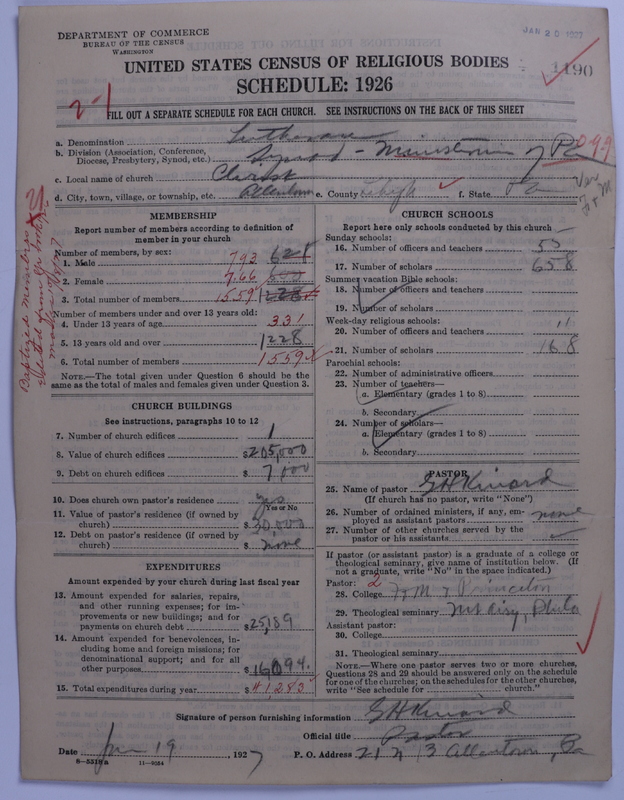 DEPARTMENT OF COMMERCE
BUREAU OF THE CENSUS
WASHINGTON
JAN 20 1927
UNITED STATES CENSUS OF RELIGIOUS BODIES
1190
SCHEDULE: 1926
2-1
FILL OUT A SEPARATE SCHEDULE FOR EACH CHURCH. SEE INSTRUCTIONS ON THE BACK OF THIS SHEET
a. Denomination Lutheran
b. Division (Association, Conference, Diocese, Presbytery, Synod, etc.) Synod - Ministerium of Pa 049
c. Local name of church Christ
d. City, town, village, or township, etc. Allentown e. County Lehigh f. State Pa
MEMBERSHIP
Report number of members according to definition of
member in your church
Number of members, by sex:
1. Male 793 628
2. Female 766 600
3. Total number of members 1559 1228
Number of members under and over 13 years old:
4. Under 13 years of age 331
5. 13 years old and over 1228
6. Total number of members 1559
NOTE.—The total given under Question 6 should be the
same as the total of males and females given under Question 3.
Baptized Members
CHURCH BUILDINGS
See instructions, paragraphs 10 to 12
7. Number of church edifices 1
8. Value of church edifices $205,000
9. Debt on church edifices $ 7,000
10. Does church own pastor's residence yes
Yes or No
11. Value of pastor's residence (if owned by
church) $ 30,000
12. Debt on pastor's residence (if owned by
church) $ none
EXPENDITURES
Amount expended by your church during last fiscal year
13. Amount expended for salaries, repairs,
and other running expenses; for im-
provements or new buildings; and for
payments on church debt $25,189
14. Amount expended for benevolences, in-
cluding home and foreign missions; for
denominational support; and for all
other purposes $16,094.
15. Total expenditures during year $41,283
CHURCH SCHOOLS
Report here only schools conducted by this church
Sunday schools:
16. Number of officers and teachers 55
17. Number of scholars 658
Summer vacation Bible schools:
18. Number of officers and teachers
19. Number of scholars
Week-day religious schools:
20. Number of officers and teachers 11
21. Number of scholars 168
Parochial schools:
22. Number of administrative officers
23. Number of teachers—
a. Elementary (grades 1 to 8)
b. Secondary
24. Number of scholars—
a. Elementary (grades 1 to 8)
b. Secondary
PASTOR
25. Name of pastor G H Kinard
(If church has no pastor, write "None")
26. Number of ordained ministers, if any, em-
ployed as assistant pastors none
27. Number of other churches served by the
pastor or his assistants
If pastor (or assistant pastor) is a graduate of a college or
theological seminary, give name of institution below. (If
not a graduate, write "No" in the space indicated.)
Pastor: 2
28. College F & M & Princeton
29. Theological seminary Mt Airy, Phila
Assistant pastor:
30. College
31. Theological seminary
NOTE.—Where one pastor serves two or more churches,
Questions 28 and 29 should be answered only on the schedule
for one of the churches; on the schedules for the other churches,
write "See schedule for church."
Signature of person furnishing information G H Kinard
Official title Pastor
Date Jan 19, 1927 P. O. Address 21 N, 13 Allentown, Pa
8—5518a 11—9054